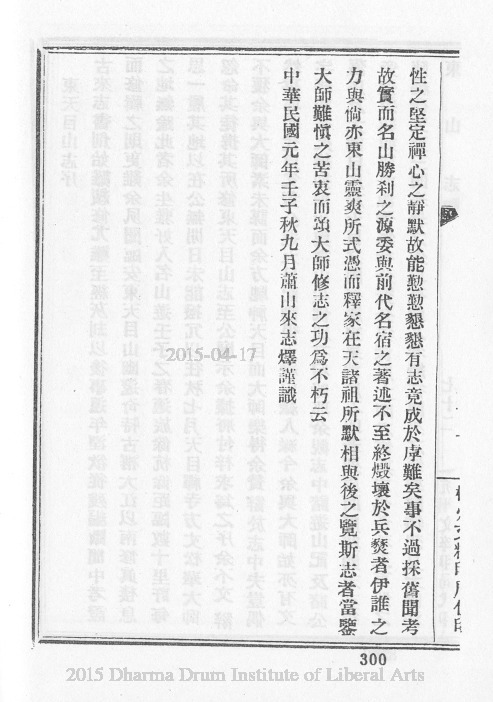 性之堅定禪心之靜默故能懃懃懇懇有志竟成於虖難矣事不過採舊聞考
故實而名山勝刹之源委與前代名宿之著述不至終燬壞於兵燹者伊誰之
力與倘亦東山靈爽所式憑而釋家在天諸祖所默相與後之覽斯志者當鑒
大師難慎之苦衷而頌大師修志之功爲不朽云
中華民國元年壬子秋九月蕭山來志爗謹識
2015-04-17
300
2015 Dharma Drum Institute of Liberal Arts